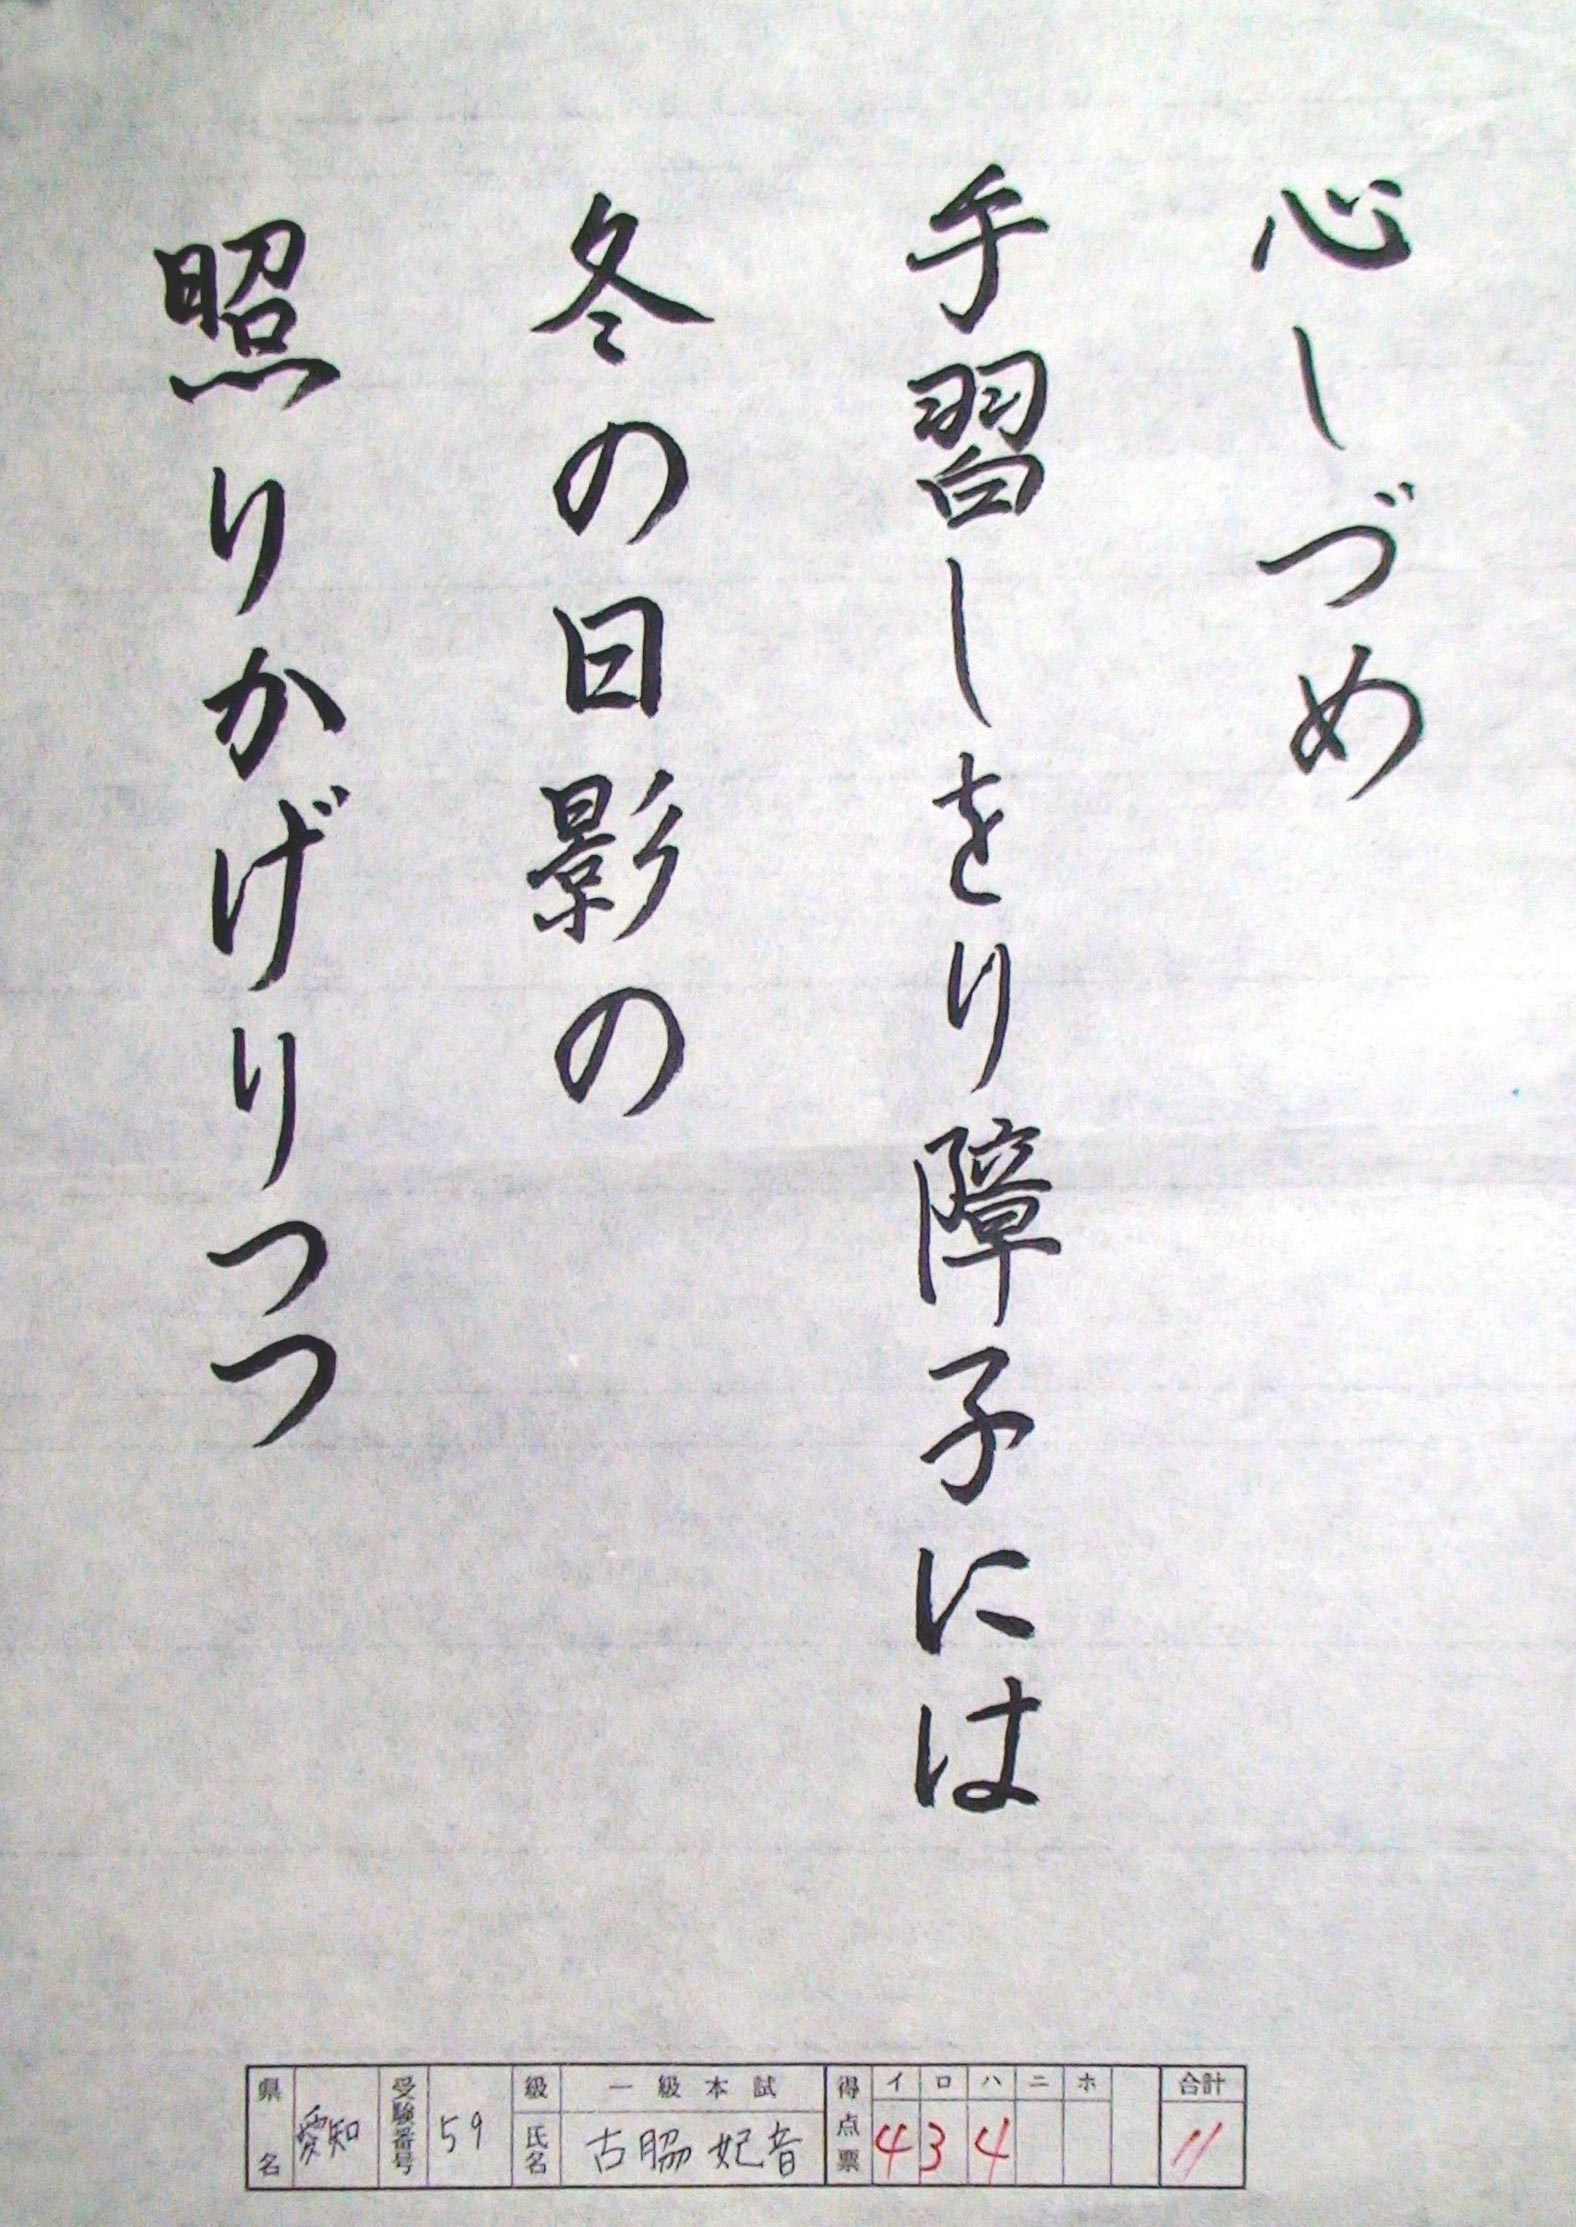 心しづめ
手習しをり障子には
冬の日影の
照りかげりつつ
県名 愛知 受験番号 59 級 一級本試 得点票 イ ロ ハ ニ ホ 合計
氏名 古脇妃音 4 3 4 11